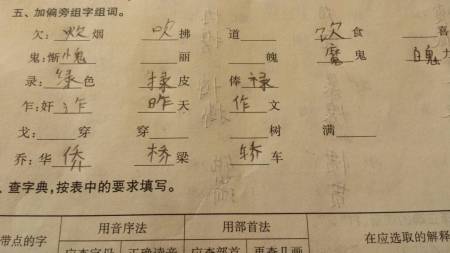 五、加偏旁组字组词。
欠：炊烟 吹拂 道___ 饮食 ___喜
鬼：惭愧 ___丽 ___魄 魔鬼 魄力
录：绿色 剥皮 俸禄
乍：奸诈 昨天 作文
戈：___穿 穿___ ___树 满___
乔：华侨 桥梁 轿车
、查字典，按表中的要求填写。
带点的字 用音序法 用部首法 在应选取的解释
应查字母 正确读音 应查部首 再查几画